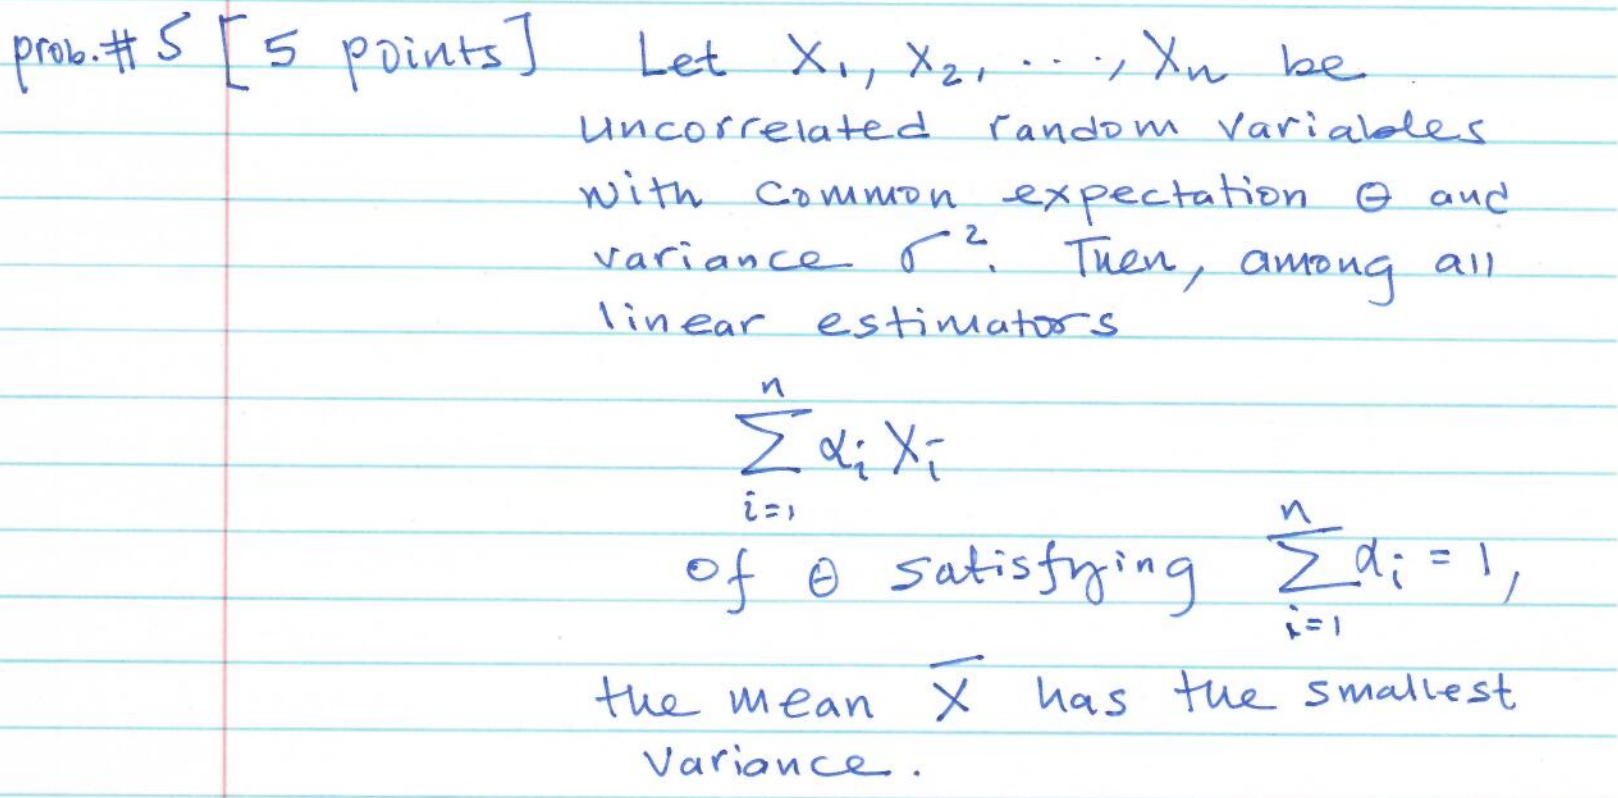 prob. # 5 [5 points] Let X₁, X₂, ..., Xn be
uncorrelated random variables
with common expectation θ and
variance σ². Then, among all
linear estimators
n
∑ αᵢ Xᵢ
i=1
n
of θ satisfying ∑ αᵢ = 1,
i=1
the mean X̅ has the smallest
variance.